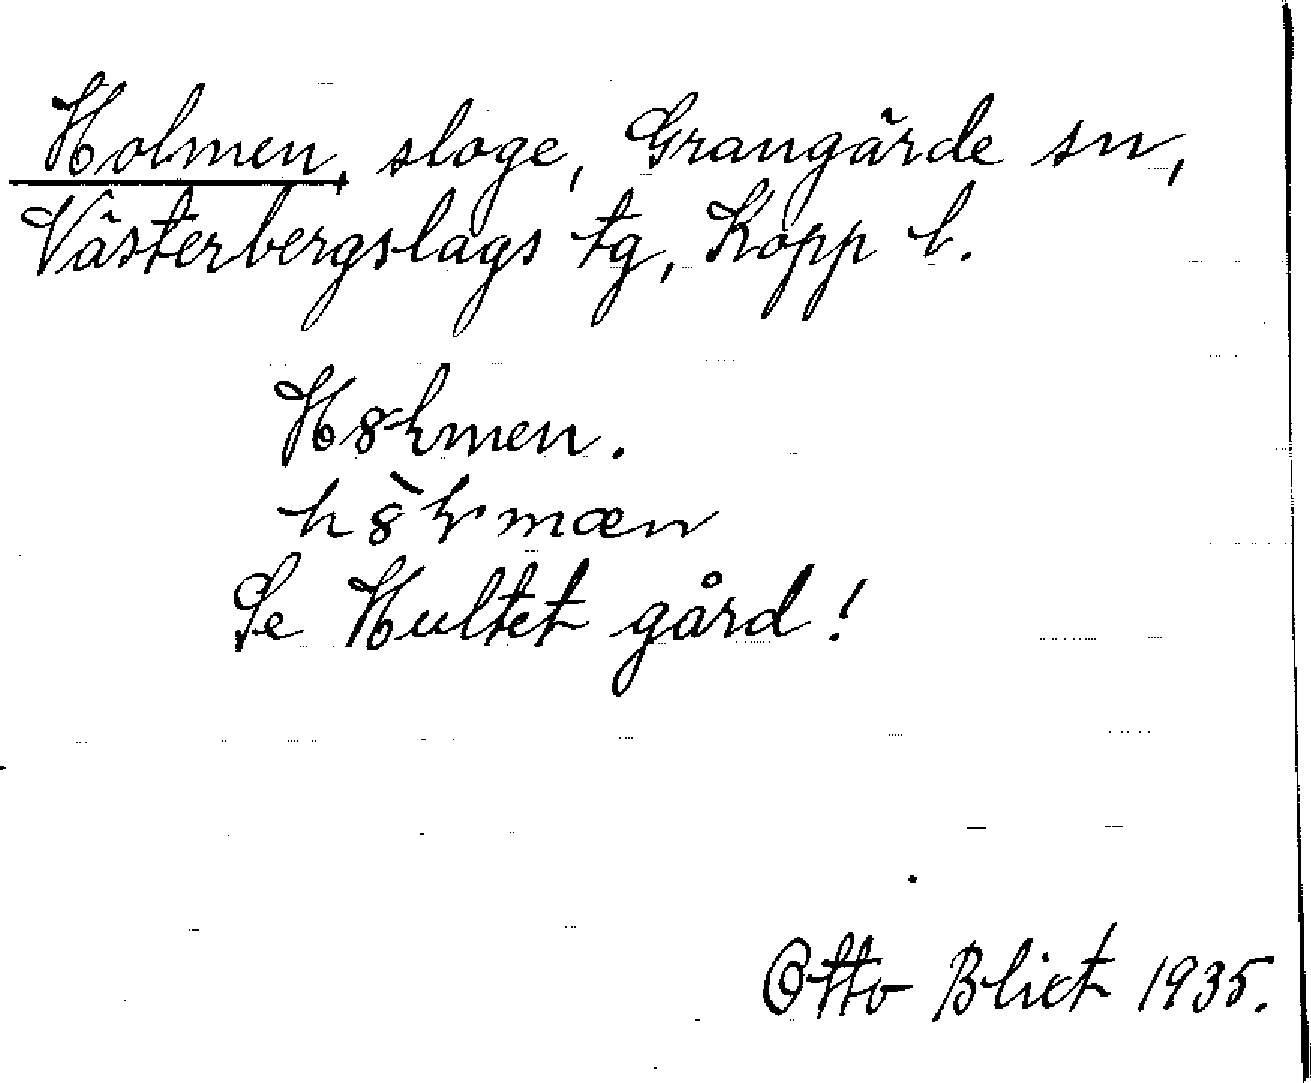 Holmen, sloge, Grangärde sn,
Västerbergslags tg, Kopp l.
Se Hultet gård!
Otto Blixt 1935.